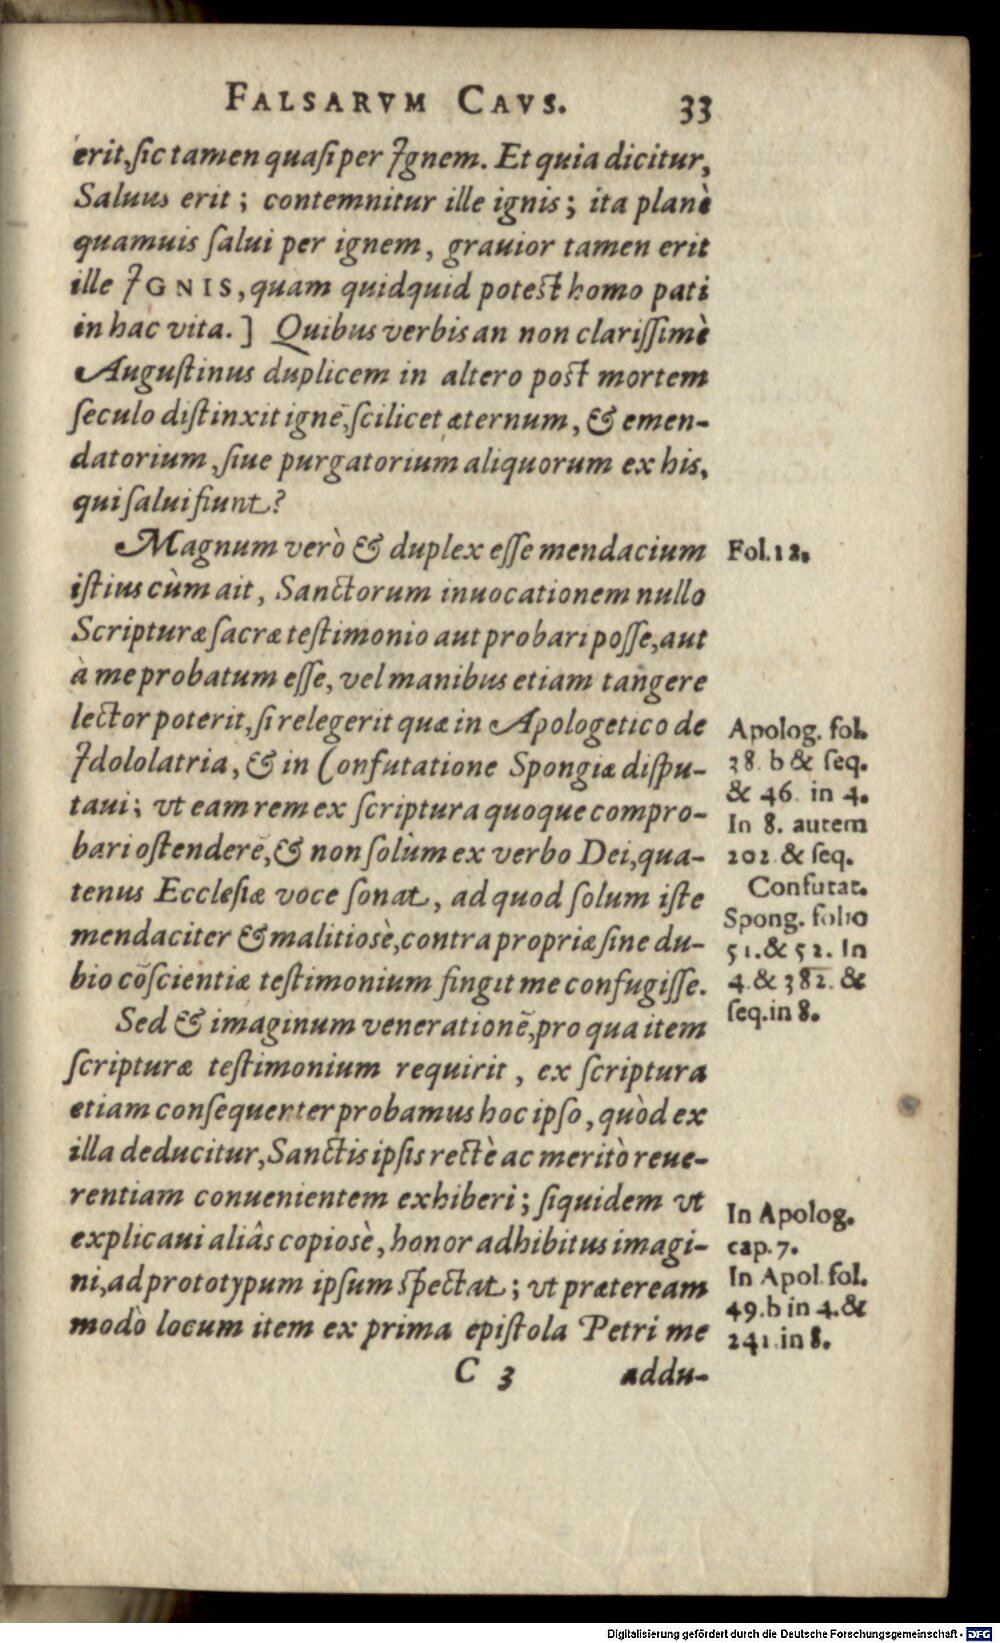 FALSARVM CAVS. 33
erit, sic tamen quasi per Ignem. Et quia dicitur,
Saluus erit; contemnitur ille ignis; ita planè
quamuis salui per ignem, grauior tamen erit
ille IGNIS, quam quidquid potest homo pati
in hac vita.] Quibus verbis an non clarissimè
Augustinus duplicem in altero post mortem
seculo distinxit ignē, scilicet æternum, & emen-
datorium, siue purgatorium aliquorum ex his,
qui salui fiunt?
Magnum verò & duplex esse mendacium
istius cùm ait, Sanctorum inuocationem nullo
Scripturæ sacræ testimonio aut probari posse, aut
à me probatum esse, vel manibus etiam tangere
lector poterit, si relegerit quæ in Apologetico de
Idololatria, & in Confutatione Spongiæ dispu-
taui; vt eam rem ex scriptura quoque compro-
bari ostenderē, & non solùm ex verbo Dei, qua-
tenus Ecclesiæ voce sonat, ad quod solum iste
mendaciter & malitiosè, contra propriæ sine du-
bio cōscientiæ testimonium fingit me confugisse.
Sed & imaginum venerationē, pro qua item
scripturæ testimonium requirit, ex scriptura
etiam consequenter probamus hoc ipso, quòd ex
illa deducitur, Sanctis ipsis rectè ac meritò reue-
rentiam conuenientem exhiberi; siquidem vt
explicaui aliâs copiosè, honor adhibitus imagi-
ni, ad prototypum ipsum spectat; vt præteream
modò locum item ex prima epistola Petri me
C 3 addu-
Fol. 12.
Apolog. fol.
38. b & seq.
& 46. in 4.
In 8. autem
202 & seq.
Confutat.
Spong. folio
51. & 52. In
4. & 382. &
seq. in 8.
In Apolog.
cap. 7.
In Apol. fol.
49. b in 4. &
241. in 8.
Digitalisierung gefördert durch die Deutsche Forschungsgemeinschaft - DFG